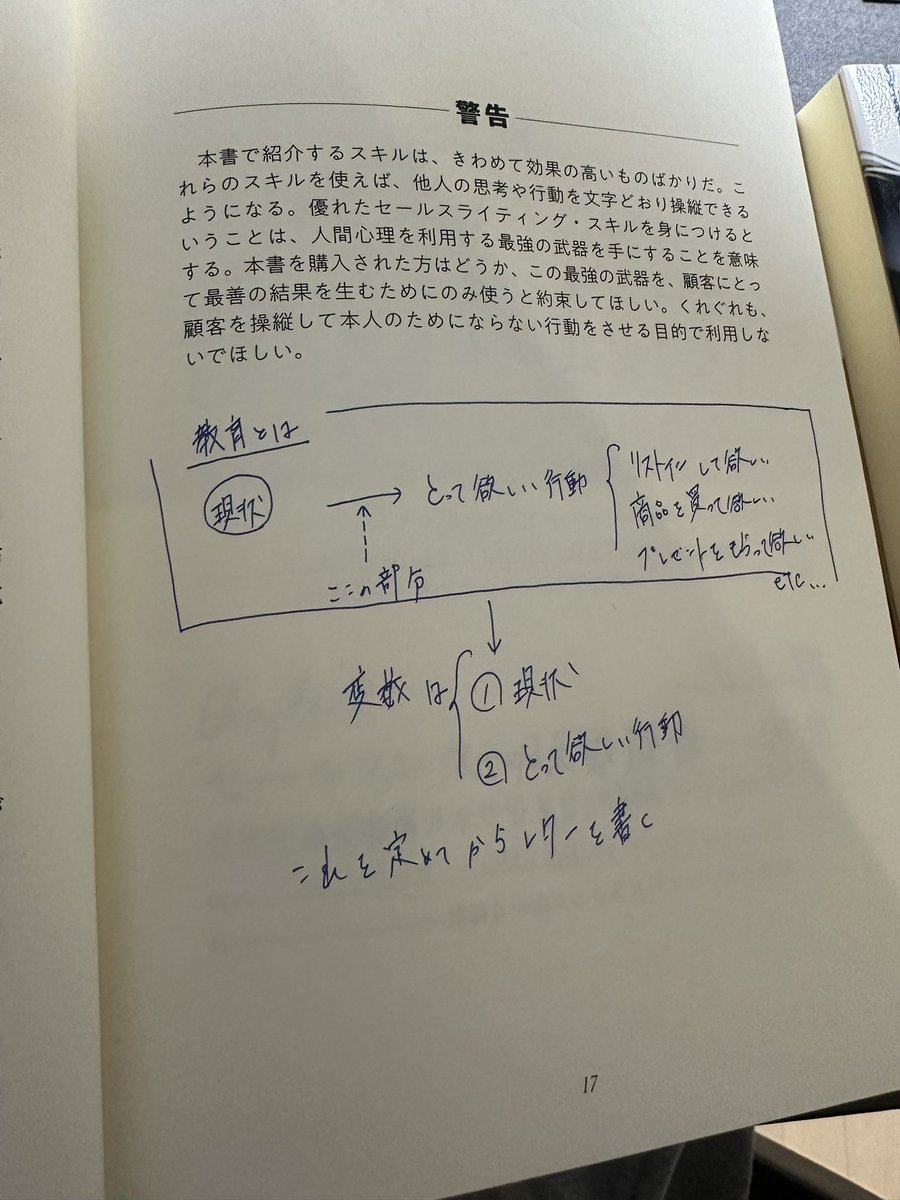 警告
本書で紹介するスキルは、きわめて効果の高いものばかりだ。こ
れらのスキルを使えば、他人の思考や行動を文字どおり操縦できる
ようになる。優れたセールスライティング・スキルを身につけると
いうことは、人間心理を利用する最強の武器を手にすることを意味
する。本書を購入された方はどうか、この最強の武器を、顧客にとっ
て最善の結果を生むためにのみ使うと約束してほしい。くれぐれも、
顧客を操縦して本人のためにならない行動をさせる目的で利用しな
いでほしい。
教育とは
現状 → とって欲しい行動
リストインして欲しい
商品を買って欲しい
プレゼントをもらって欲しい
etc...
ここの部分
変数は
① 現状
② とって欲しい行動
これを定めてからレターを書く
17